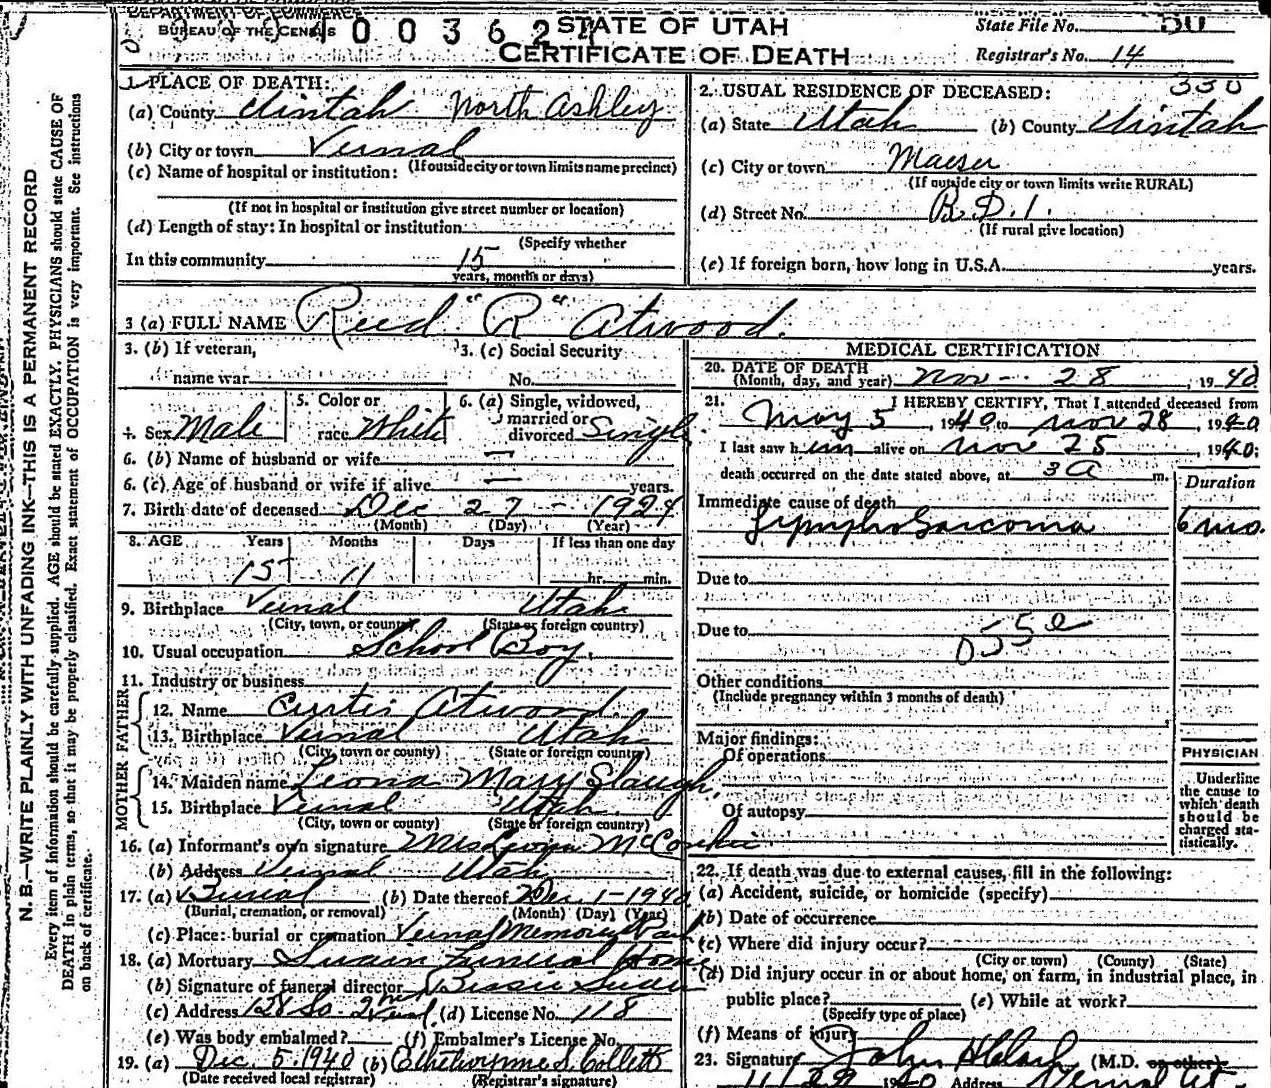 DEPARTMENT OF COMMERCE
BUREAU OF THE CENSUS
0 0 3 6 2
STATE OF UTAH
CERTIFICATE OF DEATH
State File No. 50
Registrar's No. 14
1. PLACE OF DEATH:
(a) County Uintah North Ashley
(b) City or town Vernal
(If outside city or town limits name precinct)
(c) Name of hospital or institution:
(If not in hospital or institution give street number or location)
(d) Length of stay: In hospital or institution
(Specify whether
In this community 15
years, months or days)
350
2. USUAL RESIDENCE OF DECEASED:
(a) State Utah (b) County Uintah
(c) City or town Maeser
(If outside city or town limits write RURAL)
(d) Street No. R.D. 1.
(If rural give location)
(e) If foreign born, how long in U.S.A. years.
3 (a) FULL NAME Reed "R" Atwood.
3. (b) If veteran,
name war
3. (c) Social Security
No.
4. Sex Male
5. Color or
race White
6. (a) Single, widowed,
married or
divorced Single
6. (b) Name of husband or wife —
6. (c) Age of husband or wife if alive — years.
7. Birth date of deceased Dec 27 - 1924
(Month) (Day) (Year)
8. AGE Years Months Days If less than one day
15 11 hr. min.
9. Birthplace Vernal Utah
(City, town, or county) (State or foreign country)
10. Usual occupation School Boy.
11. Industry or business
FATHER
12. Name Curtis Atwood
13. Birthplace Vernal Utah
(City, town or county) (State or foreign country)
MOTHER
14. Maiden name Leona Mary Slaugh.
15. Birthplace Vernal Utah.
(City, town or county) (State or foreign country)
16. (a) Informant's own signature Mrs Leona McConkie
(b) Address Vernal Utah
17. (a) Burial (b) Date thereof Dec. 1-1940
(Burial, cremation, or removal) (Month) (Day) (Year)
(c) Place: burial or cremation Vernal Memory Park
18. (a) Mortuary Swain Funeral Home
(b) Signature of funeral director Bessie Swain
(c) Address So. 2nd Vernal (d) License No. 118
(e) Was body embalmed? (f) Embalmer's License No.
19. (a) Dec. 5-1940 (b) S. Collett
(Date received local registrar) (Registrar's signature)
MEDICAL CERTIFICATION
20. DATE OF DEATH
(Month, day, and year) Nov - 28, 1940
21. I HEREBY CERTIFY, That I attended deceased from
May 5, 1940 to Nov 28, 1940
I last saw him alive on Nov 25 1940;
death occurred on the date stated above, at 3 a m.
Duration
Immediate cause of death
Lympho Sarcoma 6 mo.
Due to
Due to
055e
Other conditions
(Include pregnancy within 3 months of death)
Major findings:
Of operations
Of autopsy
PHYSICIAN
Underline
the cause to
which death
should be
charged sta-
tistically.
22. If death was due to external causes, fill in the following:
(a) Accident, suicide, or homicide (specify)
(b) Date of occurrence
(c) Where did injury occur?
(City or town) (County) (State)
(d) Did injury occur in or about home, on farm, in industrial place, in
public place? (e) While at work?
(Specify type of place)
(f) Means of injury
23. Signature John (M.D. or other)
11/29 1940 Address Vernal Ut
N. B.—WRITE PLAINLY WITH UNFADING INK—THIS IS A PERMANENT RECORD
Every item of information should be carefully supplied. AGE should be stated EXACTLY. PHYSICIANS should state CAUSE OF
DEATH in plain terms, so that it may be properly classified. Exact statement of OCCUPATION is very important. See instructions
on back of certificate.